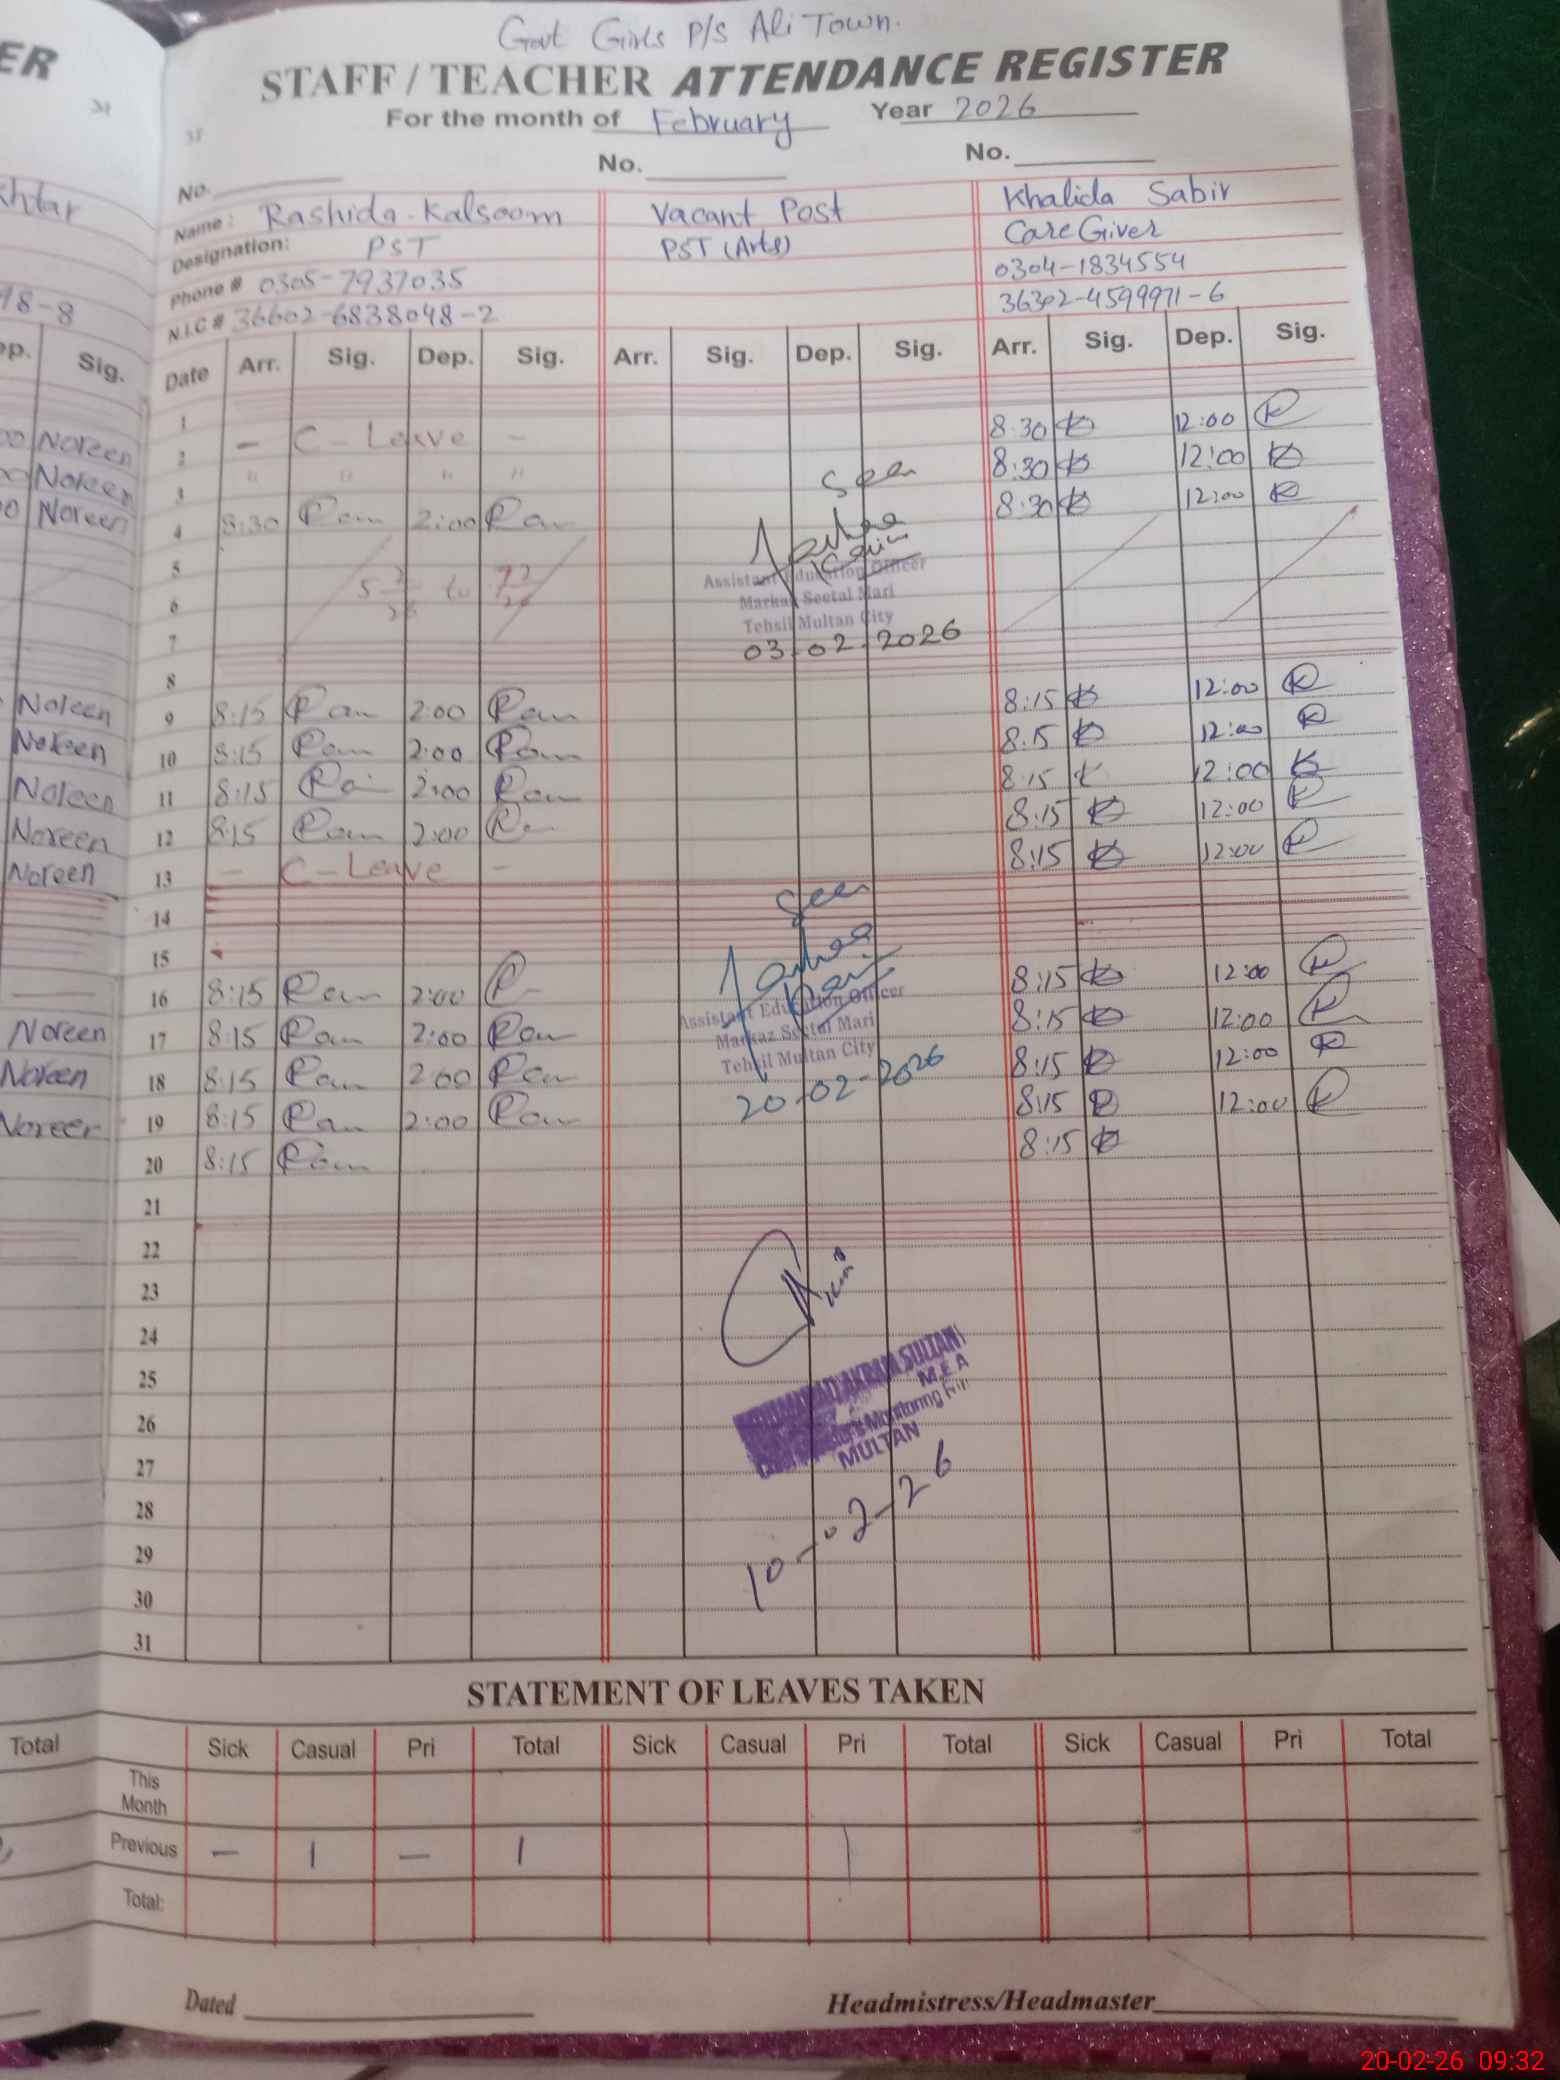 Govt Girls P/S Ali Town.
STAFF / TEACHER ATTENDANCE REGISTER
For the month of February Year 2026
No. No. No.
Name: Rashida Kalsoom Vacant Post Khalida Sabir
Designation: PST PST (Arts) Care Giver
Phone # 0305-7937035 0304-1834554
N.I.C # 36602-6838048-2 36302-4599971-6
Date Arr. Sig. Dep. Sig. Arr. Sig. Dep. Sig. Arr. Sig. Dep. Sig.
1
2 — C-Leave — 8:30 12:00
3 " " " " 8:30 12:00
Seen
4 8:30 2:00 8:30 12:00
5
6 to
7
Assistant Education Officer
Markaz Seetal Mari
Tehsil Multan City
03-02-2026
8
9 8:15 2:00 8:15 12:00
10 8:15 2:00 8:15 12:00
11 8:15 2:00 8:15 12:00
12 8:15 2:00 8:15 12:00
13 — C-Leave — 8:15 12:00
14
Seen
15
16 8:15 2:00 8:15 12:00
17 8:15 2:00 8:15 12:00
18 8:15 2:00 8:15 12:00
19 8:15 2:00 8:15 12:00
20 8:15 8:15
Assistant Education Officer
Markaz Seetal Mari
Tehsil Multan City
20-02-2026
21
22
23
24
25
26
27
28
29
30
31
AKRAM SULTAN
M.E.A
Monitoring
MULTAN
10-02-26
STATEMENT OF LEAVES TAKEN
Sick Casual Pri Total Sick Casual Pri Total Sick Casual Pri Total
This Month
Previous — 1 — 1
Total:
Dated
Headmistress/Headmaster
ER
ep. Sig.
Noreen
Noreen
Noreen
Noreen
Noreen
Noreen
Noreen
Noreen
Noreen
Noreen
Noreen
Total
20-02-26 09:32